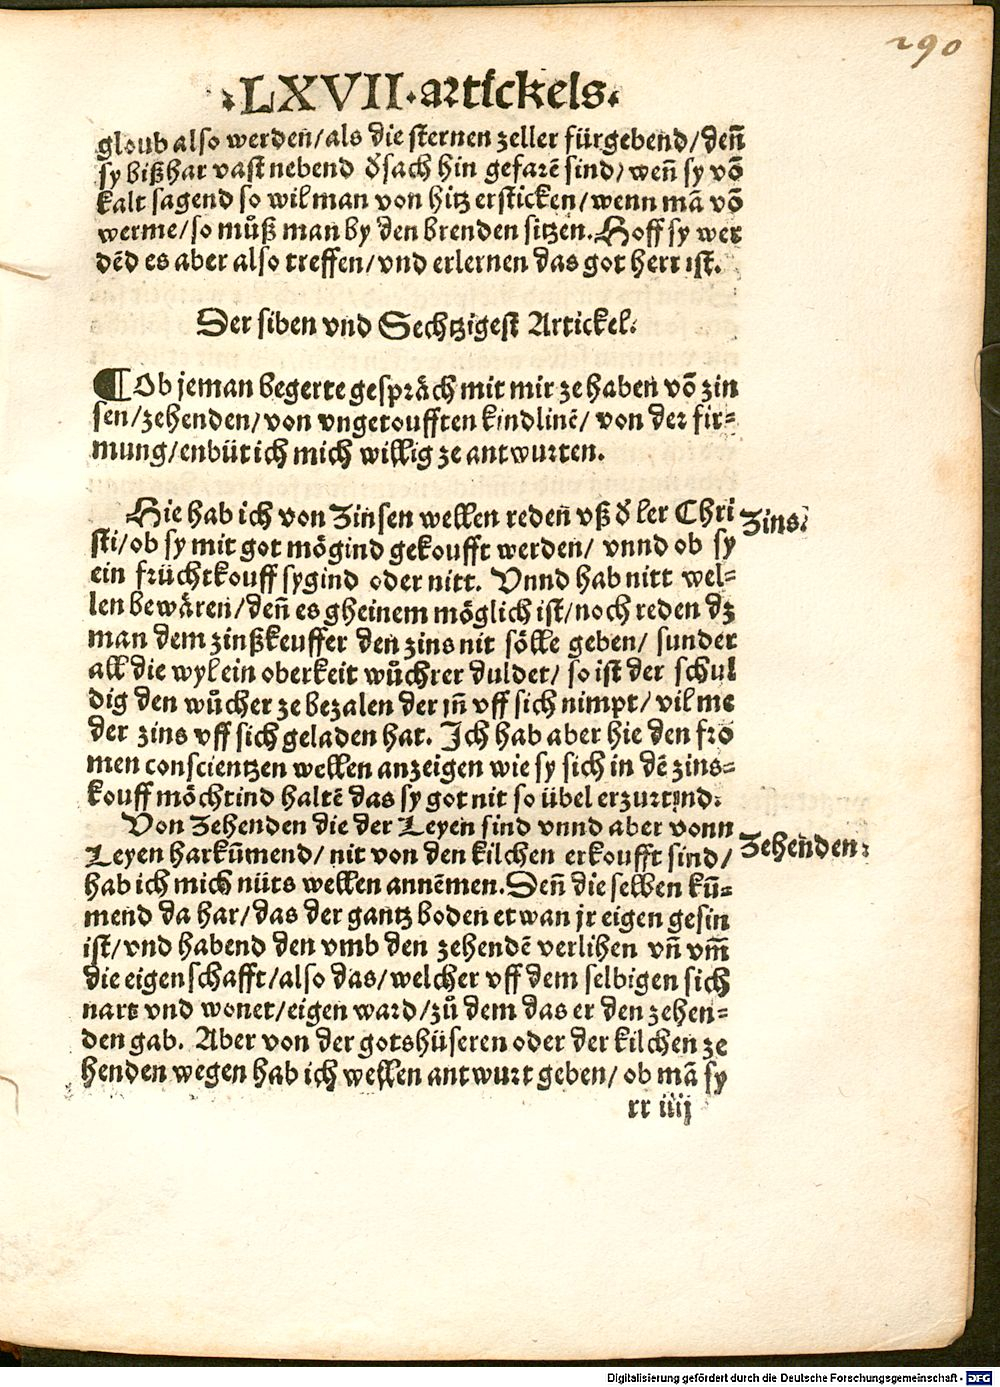 290
.LXVII.artickels.
gloub also werden/als die sternen zeller fürgebend/deñ
sy bißhar vast nebend d̕ sach hin gefarē sind/weñ sy vō
kalt sagend so wil man von hitz ersticken/wenn mā vō
werme/so můß man by den brenden sitzen. Hoff sy wer
dēd es aber also treffen/vnd erlernen das got herr ist.
Der siben vnd Sechtzigest Artickel.
¶ Ob jeman begerte gespräch mit mir ze haben vō zin
sen/zehenden/von vngetoufften kindlinē/von der fir-
mung/enbüt ich mich willig ze antwurten.
Hie hab ich von Zinsen wellen reden vß d̕ ler Chri
sti/ob sy mit got mögind gekoufft werden/vnnd ob sy
ein früchtkouff sygind oder nitt. Vnnd hab nitt wel-
len bewären/deñ es gheinem möglich ist/noch reden dz
man dem zinßkeuffer den zins nit sölle geben/sunder
all die wyl ein oberkeit wůchrer duldet/so ist der schul
dig den wůcher ze bezalen der jñ vff sich nimpt/vil me
der zins vff sich geladen hat. Ich hab aber hie den frō
men conscientzen wellen anzeigen wie sy sich in dē zins-
kouff möchtind haltē das sy got nit so übel erzurtind.
Von Zehenden die der Leyen sind vnnd aber vonn
Leyen harkūmend/nit von den kilchen erkoufft sind/
hab ich mich nüts wellen annēmen. Deñ die selben kū-
mend da har/das der gantz boden etwan jr eigen gesin
ist/vnd habend den vmb den zehendē verlihen vñ vm̄
die eigenschafft/also das/welcher vff dem selbigen sich
nart vnd wonet/eigen ward/zů dem das er den zehen-
den gab. Aber von der gotshüseren oder der kilchen ze
henden wegen hab ich wellen antwurt geben/ob mā sy
rr iiij
Zins.
Zehenden.
Digitalisierung gefördert durch die Deutsche Forschungsgemeinschaft - DFG